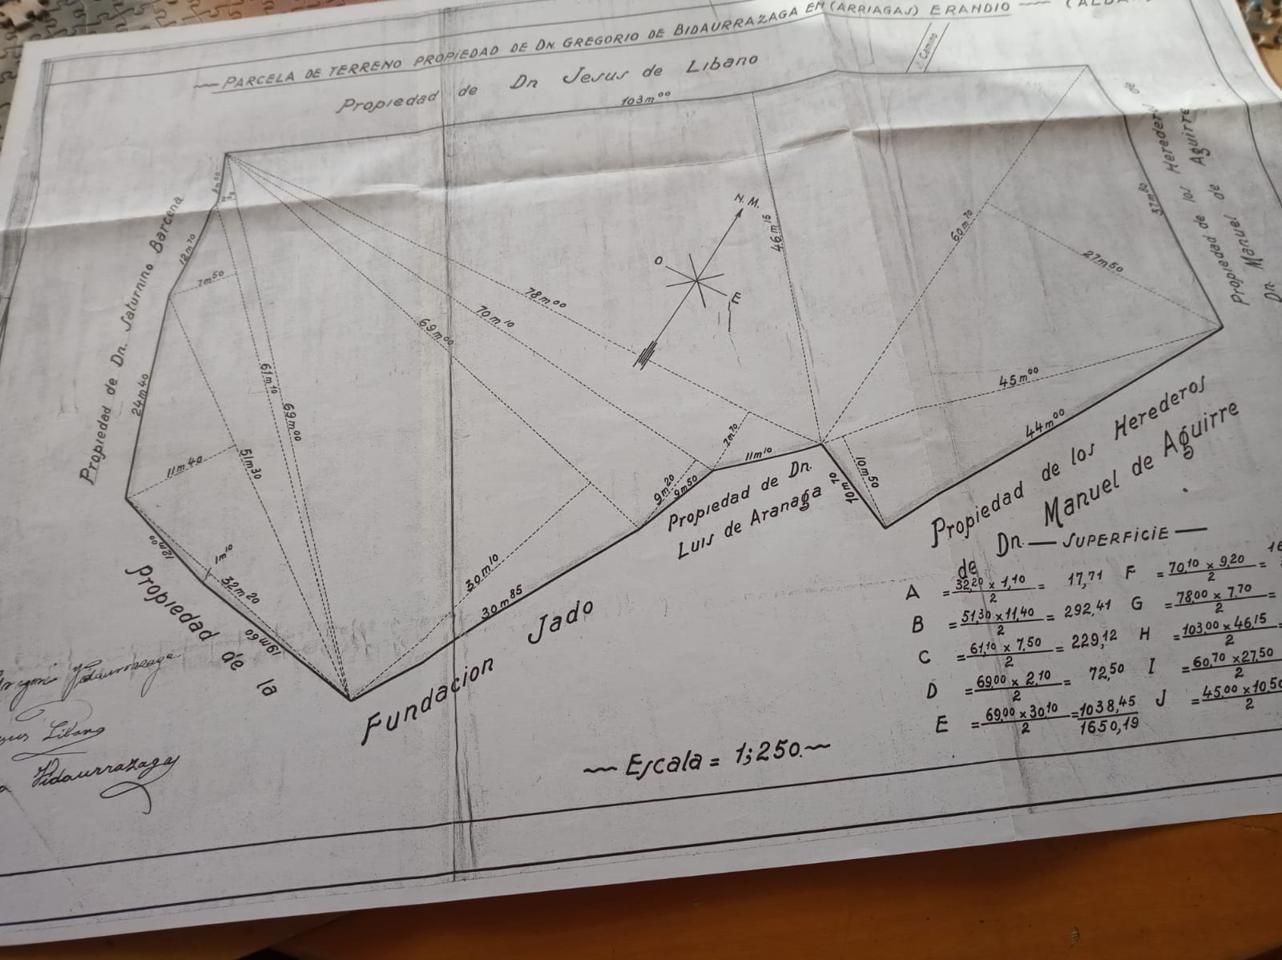 PARCELA DE TERRENO PROPIEDAD DE Dn. GREGORIO DE BIDAURRAZAGA EN (ARRIAGAS) ERANDIO
Propiedad de Dn Jesus de Libano
Camino
103m00
Propiedad de los Herederos de
Dn. Manuel de Aguirre
37m80
Propiedad de Dn. Saturnino Barcena
12m70
7m50
24m40
11m40
61m10
69m00
51m30
69m00
70m10
78m00
N.M.
O
E
46m15
60m70
27m50
45m00
44m00
10m50
10m70
11m10
7m70
9m20
9m50
30m10
30m85
12m00
1m10
32m20
19m60
Propiedad de la
Fundacion Jado
Propiedad de Dn.
Luis de Aranaga
Propiedad de los Herederos
de Dn. Manuel de Aguirre
SUPERFICIE
A = 32,20 x 1,10 / 2 = 17,71
B = 51,30 x 11,40 / 2 = 292,41
C = 61,10 x 7,50 / 2 = 229,12
D = 69,00 x 2,10 / 2 = 72,50
E = 69,00 x 30,10 / 2 = 1038,45
1650,19
F = 70,10 x 9,20 / 2 =
G = 78,00 x 7,70 / 2 =
H = 103,00 x 46,15 / 2 =
I = 60,70 x 27,50 / 2
J = 45,00 x 10,50 / 2
Escala = 1:250.
Libano
Bidaurrazaga